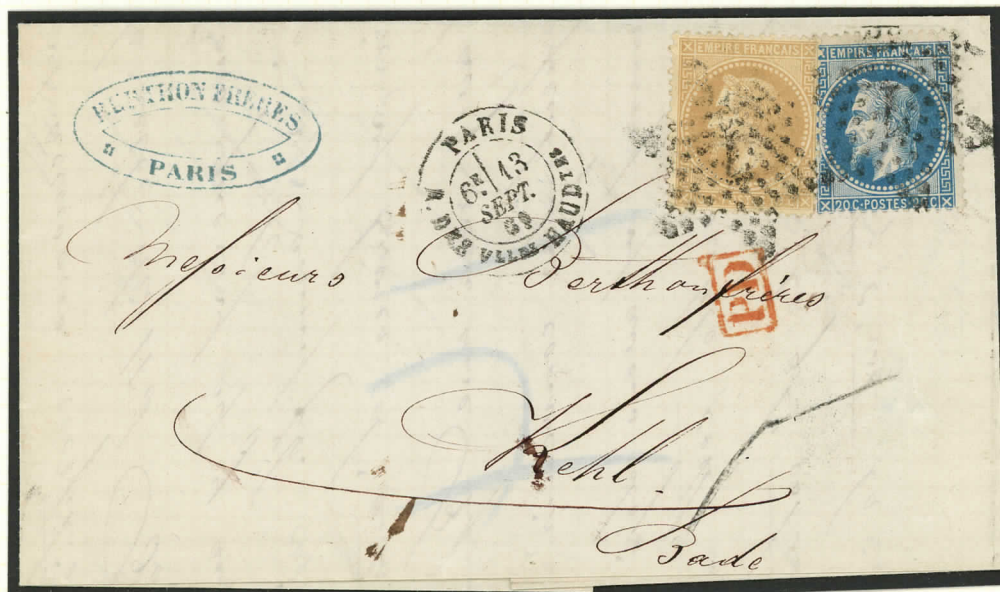 BERTHON FRÈRES
PARIS
PARIS
6E 13
SEPT.
69
EMPIRE FRANCAIS
EMPIRE FRANCAIS
20C POSTES
1
1
PD
Messieurs Berthon frères
Kehl.
Bade